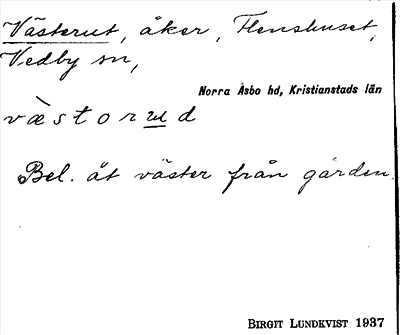 Västerut, åker, Flenshuset,
Vedby sn,
Norra Åsbo hd, Kristianstads län
væstorud
Bel. åt väster från gården.
BIRGIT LUNDKVIST 1937